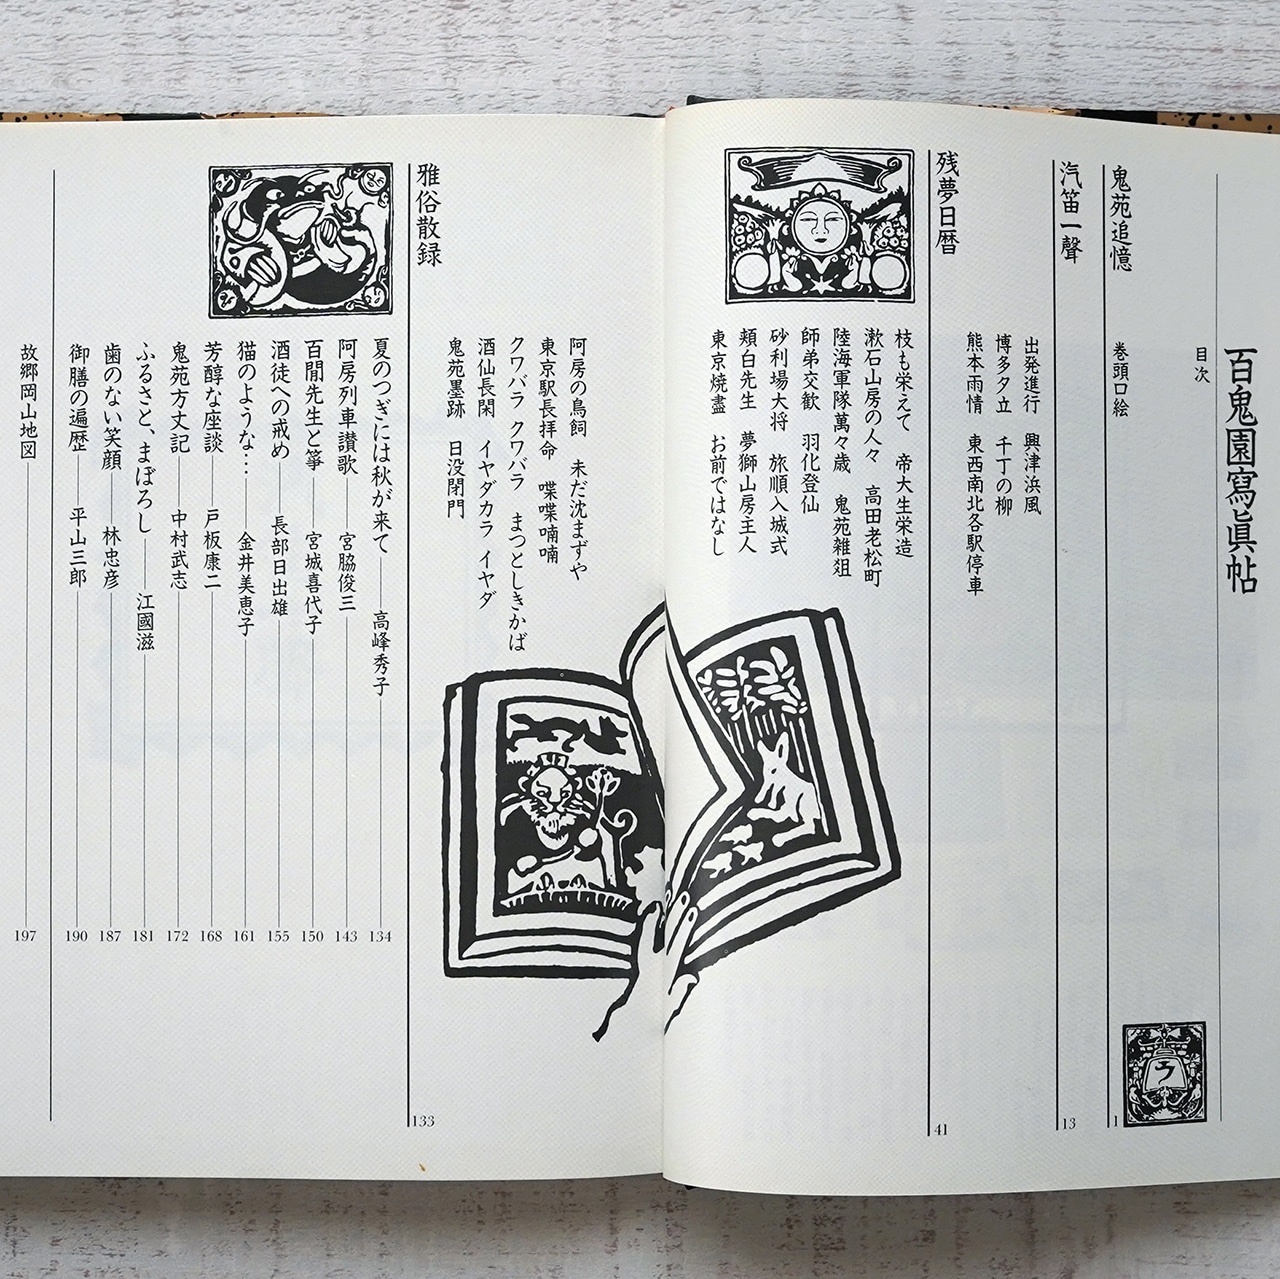 百鬼園寫眞帖
目次
鬼苑追憶 巻頭口絵 1
汽笛一聲 13
出発進行 興津浜風
博多夕立 千丁の柳
熊本雨情 東西南北各駅停車
残夢日暦 41
枝も栄えて 帝大生栄造
漱石山房の人々 高田老松町
陸海軍隊萬々歳 鬼苑雑俎
師弟交歓 羽化登仙
砂利場大将 旅順入城式
頬白先生 夢獅山房主人
東京焼盡 お前ではなし
阿房の鳥飼 未だ沈まずや
東京駅長拝命 喋喋喃喃
クワバラ クワバラ まつとしきかば
酒仙長閑 イヤダカラ イヤダ
鬼苑墨跡 日没閉門
雅俗散録 133
夏のつぎには秋が来て 高峰秀子 134
阿房列車讃歌 宮脇俊三 143
百閒先生と箏 宮城喜代子 150
酒徒への戒め 長部日出雄 155
猫のような… 金井美恵子 161
芳醇な座談 戸板康二 168
鬼苑方丈記 中村武志 172
ふるさと、まぼろし 江國滋 181
歯のない笑顔 林忠彦 187
御膳の遍歴 平山三郎 190
故郷岡山地図 197